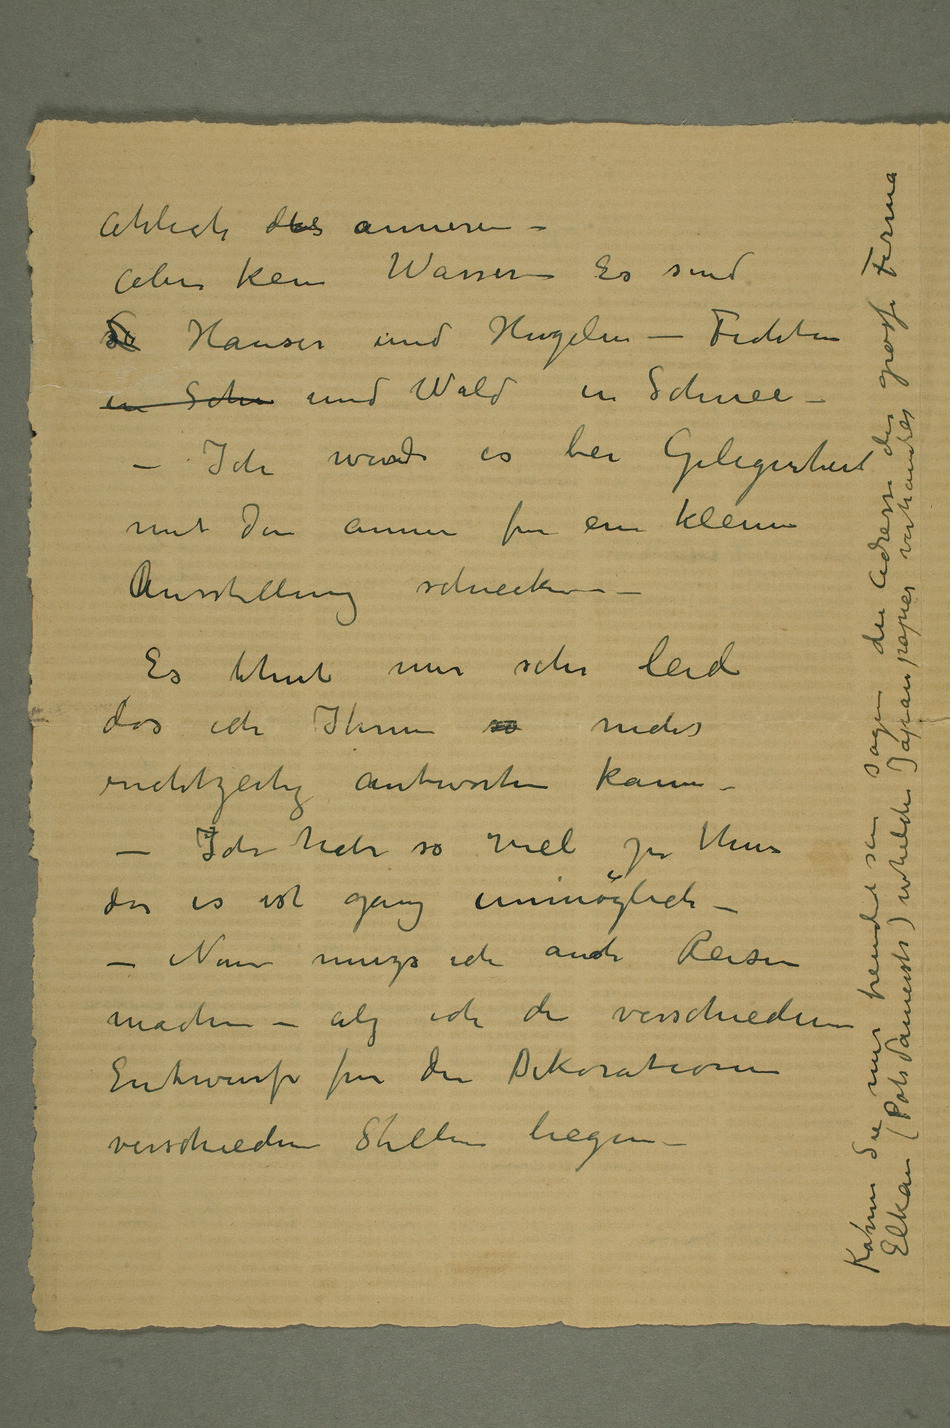 Ahlich des anneren –
aber kein Wasser Es sind
So Hauser und Hugeln – Fichten
in Schn und Wald in Schnee –
– Ich werde es bei Gelegenheit
mit den annern für ein kleine
Ausstellung schicken –
Es thut mir sehr leid
das ich Ihnen so nicht
rechtzeitig antworten kann –
– Ich habe so viel zu thun
das es ist ganz unmöglich –
– Nun muzs ich auch Reisen
machen – alz ich die verschiedenen
Entwurfe für die Dekorationen
verschiedene Stellen liegen –
Kønnen Sie mir freundlich sein sagen die Adresse der grosse Firma
Elkan (Potsdamerstr) welche Japanpapier verhandler